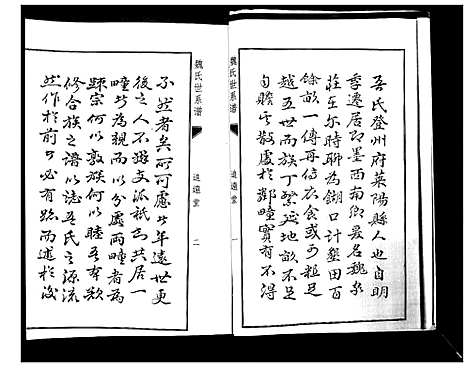 吾氏登州府萊陽縣人也自明
季遷居即墨西南鄉最名穐泉
莊在尔時聊為餬口計墾田百
餘畝一傳再傳衣食或可粗足
越五世而族丁繁衍地畝不足
自贍於散處於鄰疃實有不得
魏氏世系谱
追遠堂
一
魏氏世系谱
追遠堂
二
不然者矣所可慮此年遠世更
後之人不識支派祇知共居一
疃者為親而以分處兩疃者為
踈宗何以敦族何以睦吾本欲
修合族之譜以誌吾氏之源流
然作於前者必有賂而述於後